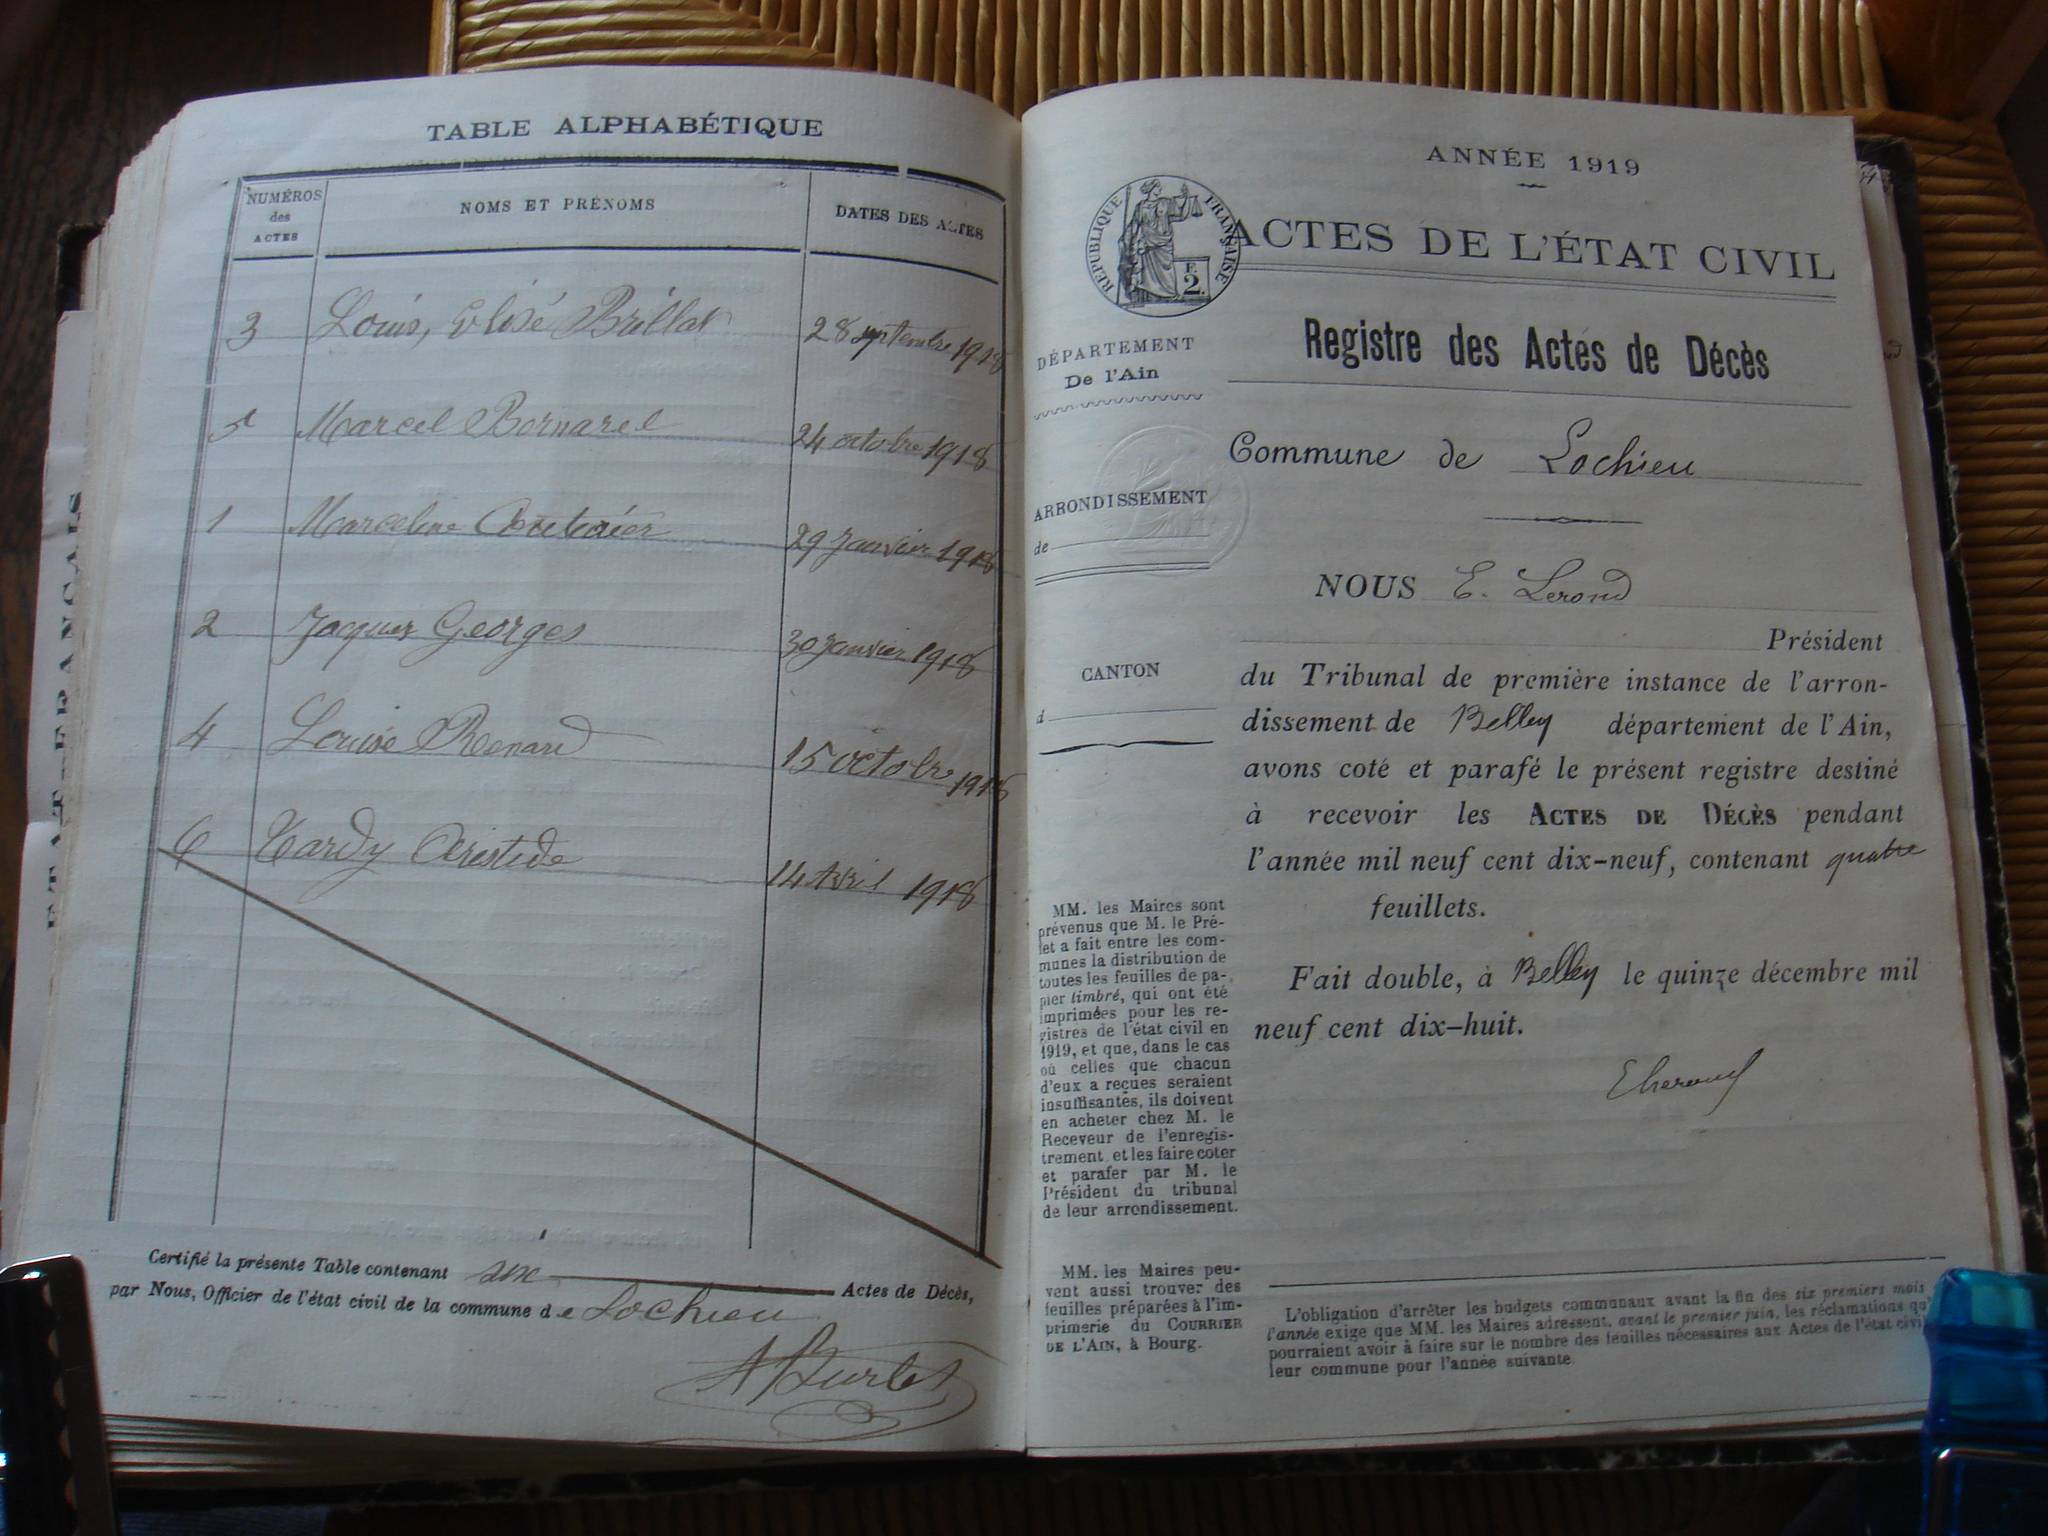 TABLE ALPHABÉTIQUE
NUMÉROS
des
ACTES
NOMS ET PRÉNOMS
DATES DES ACTES
3 Louis, Elisé Brillat 28 septembre 1918
5 Marcel Bornarel 24 octobre 1918
1 Marceline 29 Janvier 1918
2 Jacques Georges 30 janvier 1918
4 Louise Renard 15 octobre 1918
6 Tardy Aristide 14 Avril 1918
Certifié la présente Table contenant six Actes de Décès,
par Nous, Officier de l'état civil de la commune de Lochieu
ÉTAT FRANÇAIS
ANNÉE 1919
RÉPUBLIQUE FRANÇAISE
F.
2.
ACTES DE L'ÉTAT CIVIL
Registre des Actes de Décès
DÉPARTEMENT
De l'Ain
Commune de Lochieu
ARRONDISSEMENT
de
NOUS E. Lerond
Président
CANTON
d
du Tribunal de première instance de l'arron-
dissement de Belley département de l'Ain,
avons coté et parafé le présent registre destiné
à recevoir les ACTES DE DÉCÈS pendant
l'année mil neuf cent dix-neuf, contenant quatre
feuillets.
Fait double, à Belley le quinze décembre mil
neuf cent dix-huit.
MM. les Maires sont
prévenus que M. le Pré-
fet a fait entre les com-
munes la distribution de
toutes les feuilles de pa-
pier timbré, qui ont été
imprimées pour les re-
gistres de l'état civil en
1919, et que, dans le cas
où celles que chacun
d'eux a reçues seraient
insuffisantes, ils doivent
en acheter chez M. le
Receveur de l'enregis-
trement et les faire coter
et parafer par M. le
Président du tribunal
de leur arrondissement.
MM. les Maires peu-
vent aussi trouver des
feuilles préparées à l'im-
primerie du COURRIER
DE L'AIN, à Bourg.
L'obligation d'arrêter les budgets communaux avant la fin des six premiers mois
l'année exige que MM. les Maires adressent, avant le premier juin, les réclamations qu'
pourraient avoir à faire sur le nombre des feuilles nécessaires aux Actes de l'état civil
leur commune pour l'année suivante